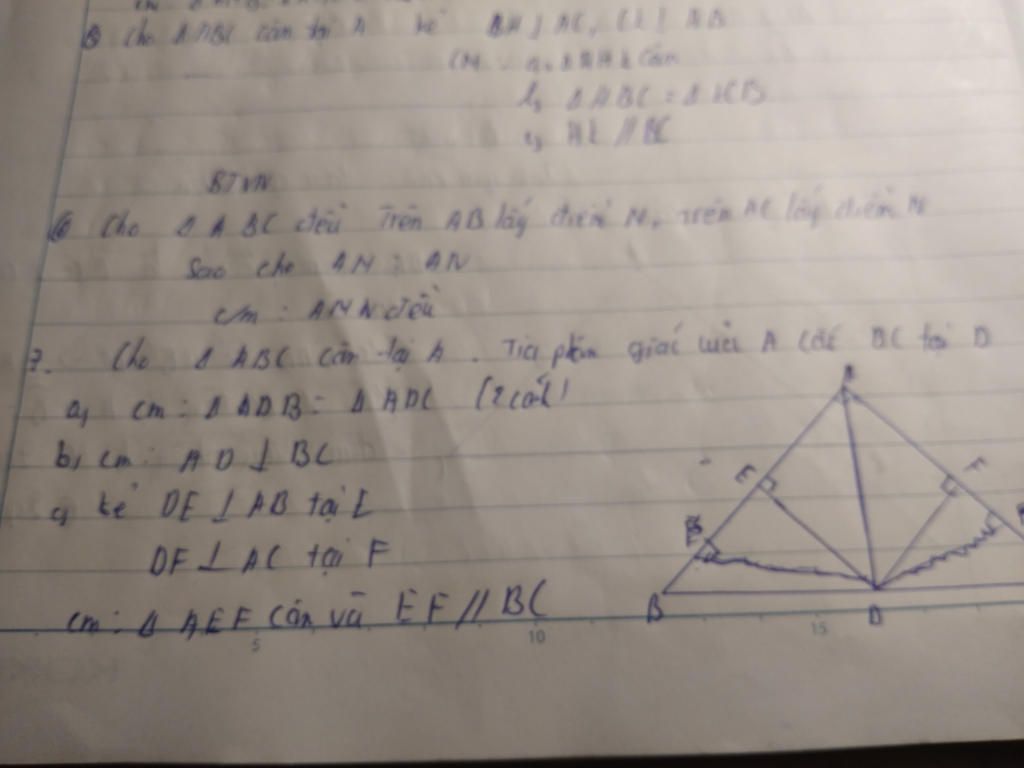 ⑤ Cho Δ ABC cân tại A kẻ BH ⊥ AC, CK ⊥ AB
CM a, Δ AHK cân
b, Δ KBC = Δ HCB
c, HK // BC
BTVN
⑥ Cho Δ ABC đều Trên AB lấy điểm M, trên AC lấy điểm N
Sao cho AM = AN
c/m : AMN đều
7. Cho Δ ABC cân tại A . Tia phân giác của A cắt BC tại D
a, cm : Δ ADB = Δ ADC (2 cách)
b, cm : AD ⊥ BC
c, kẻ DE ⊥ AB tại E
DF ⊥ AC tại F
cm : Δ AEF cân và EF // BC
A
E
F
B
D
5 10 15